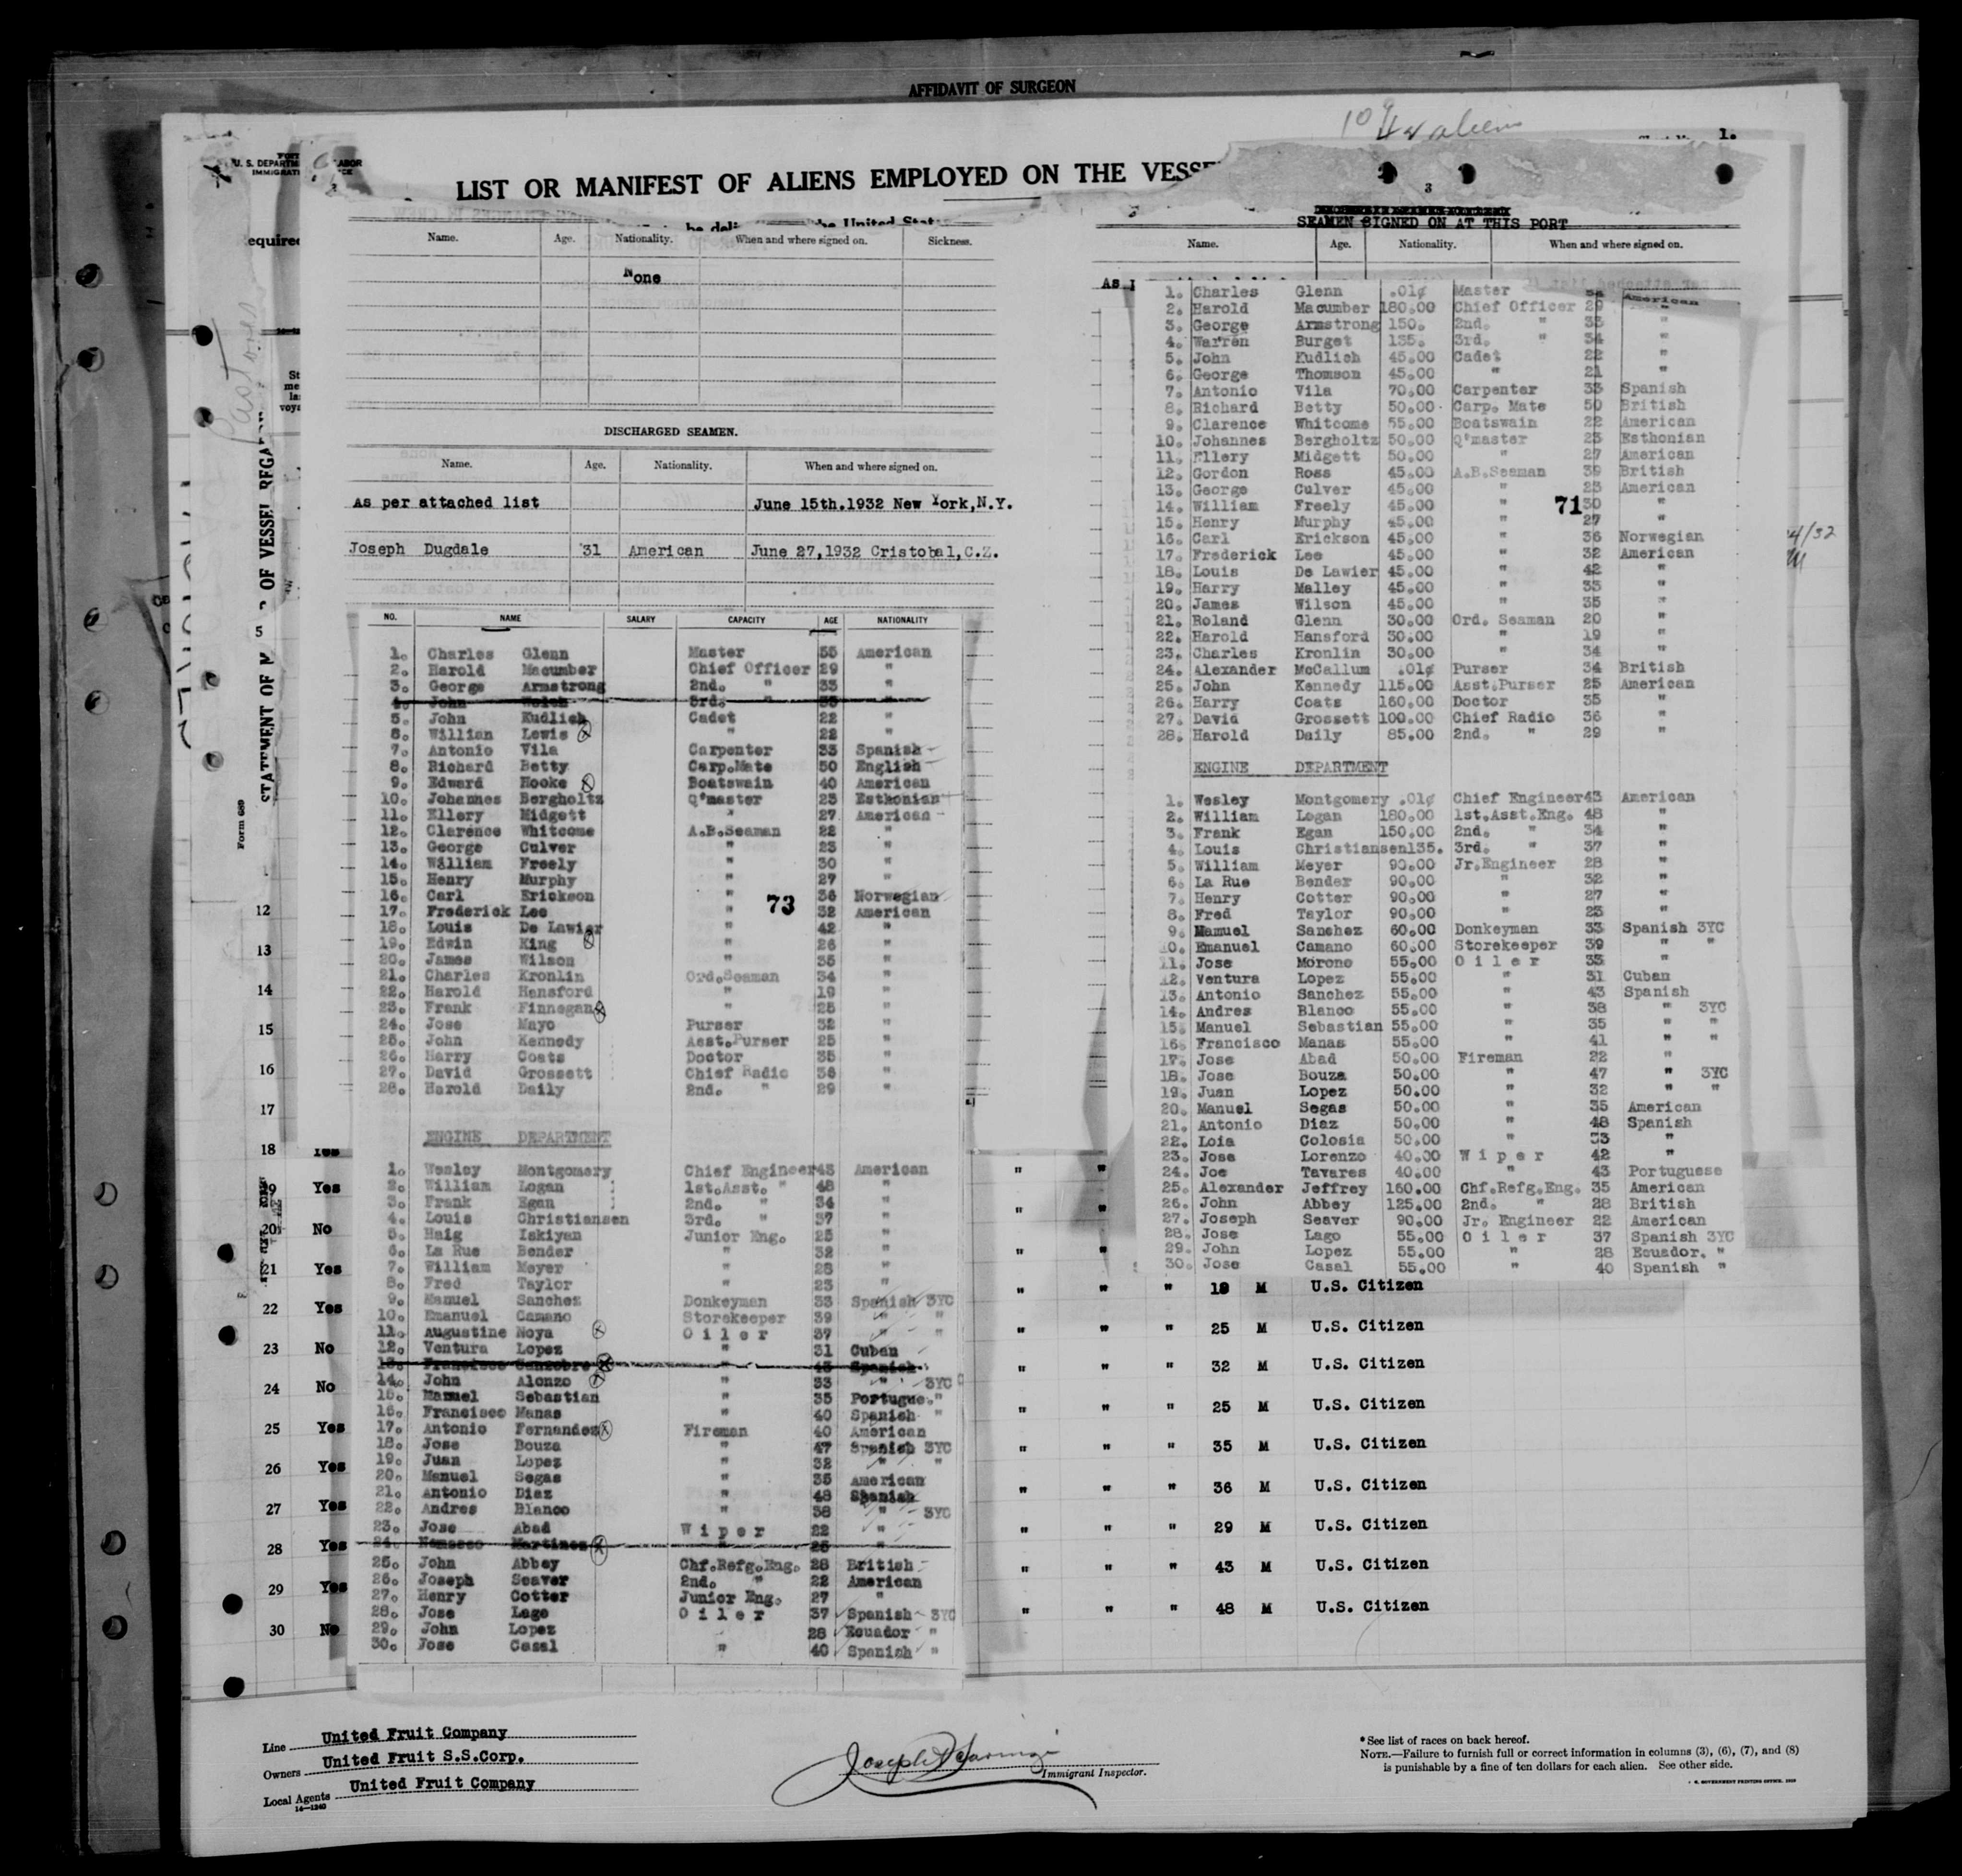 AFFIDAVIT OF SURGEON
1.
LIST OR MANIFEST OF ALIENS EMPLOYED ON THE VESSE
3
Name. Age. Nationality. When and where signed on. Sickness.
None
DISCHARGED SEAMEN.
Name. Age. Nationality. When and where signed on.
As per attached list June 15th.1932 New York,N.Y.
Joseph Dugdale 31 American June 27,1932 Cristobal,C.Z.
NO. NAME SALARY CAPACITY AGE NATIONALITY
1. Charles Glenn Master 55 American
2. Harold Macumber Chief Officer 29 "
3. George Armstrong 2nd. " 33 "
4. John Welch 3rd. "
5. John Kudlich Cadet 22 "
6. Willian Lewis " 22 "
7. Antonio Vila Carpenter 33 Spanish
8. Richard Betty Carp.Mate 50 English
9. Edward Hooke Boatswain 40 American
10. Johannes Bergholtz Q'master 23 Esthonian
11. Ellery Midgett " 27 American
12. Clarence Whitcome A.B.Seaman 22 "
13. George Culver " 23 "
14. William Freely " 30 "
15. Henry Murphy " 27 "
16. Carl Erickson " 36 Norwegian
73
17. Frederick Lee " 32 American
18. Louis De Lawier " 42 "
19. Edwin King " 26 "
20. James Wilson " 35 "
21. Charles Kronlin Ord.Seaman 34 "
22. Harold Hansford " 19 "
23. Frank Finnegan " 25 "
24. Jose Mayo Purser 32 "
25. John Kennedy Asst.Purser 25 "
26. Harry Coats Doctor 35 "
27. David Grossett Chief Radio 36 "
28. Harold Daily 2nd. " 29 "
ENGINE DEPARTMENT
1. Wesley Montgomery Chief Engineer43 American
2. William Logan 1st.Asst. " 48 "
3. Frank Egan 2nd. " 34 "
4. Louis Christiansen 3rd. " 37 "
5. Haig Iskiyan Junior Eng. 25 "
6. La Rue Bender " 32 "
7. William Meyer " 28 "
8. Fred Taylor " 23 "
9. Manuel Sanchez Donkeyman 33 Spanish 3YC
10. Emanuel Camano Storekeeper 39 " "
11. Augustine Noya O i l e r 37 " "
12. Ventura Lopez " 31 Cuban
13. Francisco " 43 Spanish
14. John Alonzo " 33 " 3YC
15. Manuel Sebastian " 35 Portugue. "
16. Francisco Manas " 40 Spanish "
17. Antonio Fernandez Fireman 40 American
18. Jose Bouza " 47 Spanish 3YC
19. Juan Lopez " 32 " "
20. Manuel Segas " 35 American
21. Antonio Diaz " 48 Spanish
22. Andres Blanco " 38 " 3YC
23. Jose Abad W i p e r 22 "
24. Martinez 25 "
25. John Abbey Chf.Refg.Eng. 28 British
26. Joseph Seaver 2nd. " 22 American
27. Henry Cotter Junior Eng. 27 "
28. Jose Lago O i l e r 37 Spanish 3YC
29. John Lopez 28 Ecuador "
30. Jose Casal " 40 Spanish "
SEAMEN SIGNED ON AT THIS PORT
Name. Age. Nationality. When and where signed on.
As
1. Charles Glenn .01¢ Master 54 American
2. Harold Macumber 180.00 Chief Officer 29 "
3. George Armstrong 150. 2nd. " 33 "
4. Warren Burget 135. 3rd. " 34 "
5. John Kudlich 45.00 Cadet 22 "
6. George Thomson 45.00 " 21 "
7. Antonio Vila 70.00 Carpenter 33 Spanish
8. Richard Betty 50.00 Carp. Mate 50 British
9. Clarence Whitcome 55.00 Boatswain 22 American
10. Johannes Bergholtz 50.00 Q'master 23 Esthonian
11. Ellery Midgett 50.00 " 27 American
12. Gordon Ross 45.00 A.B.Seaman 39 British
13. George Culver 45.00 " 23 American
14. William Freely 45.00 " 30 "
71
15. Henry Murphy 45.00 " 27 "
16. Carl Erickson 45.00 " 36 Norwegian
17. Frederick Lee 45.00 " 32 American
18. Louis De Lawier 45.00 " 42 "
19. Harry Malley 45.00 " 33 "
20. James Wilson 45.00 " 35 "
21. Roland Glenn 30.00 Ord. Seaman 20 "
22. Harold Hansford 30.00 " 19 "
23. Charles Kronlin 30.00 " 34 "
24. Alexander McCallum .01¢ Purser 34 British
25. John Kennedy 115.00 Asst.Purser 25 American
26. Harry Coats 160.00 Doctor 35 "
27. David Grossett 100.00 Chief Radio 36 "
28. Harold Daily 85.00 2nd. " 29 "
ENGINE DEPARTMENT
1. Wesley Montgomery .01¢ Chief Engineer43 American
2. William Logan 180.00 1st.Asst.Eng. 48 "
3. Frank Egan 150.00 2nd. " 34 "
4. Louis Christiansen135. 3rd. " 37 "
5. William Meyer 90.00 Jr.Engineer 28 "
6. La Rue Bender 90.00 " 32 "
7. Henry Cotter 90.00 " 27 "
8. Fred Taylor 90.00 " 23 "
9. Mamuel Sanchez 60.00 Donkeyman 33 Spanish 3YC
10. Emanuel Camano 60.00 Storekeeper 39 " "
11. Jose Morono 55.00 O i l e r 33 "
12. Ventura Lopez 55.00 " 31 Cuban
13. Antonio Sanchez 55.00 " 43 Spanish
14. Andres Blanco 55.00 " 38 " 3YC
15. Manuel Sebastian 55.00 " 35 " "
16. Francisco Manas 55.00 " 41 " "
17. Jose Abad 50.00 Fireman 22 "
18. Jose Bouza 50.00 " 47 " 3YC
19. Juan Lopez 50.00 " 32 " "
20. Manuel Segas 50.00 " 35 American
21. Antonio Diaz 50.00 " 48 Spanish
22. Loia Colosia 50.00 " 33 "
23. Jose Lorenzo 40.00 W i p e r 42 "
24. Joe Tavares 40.00 " 43 Portuguese
25. Alexander Jeffrey 160.00 Chf.Refg.Eng. 35 American
26. John Abbey 125.00 2nd. " 28 British
27. Joseph Seaver 90.00 Jr. Engineer 22 American
28. Jose Lago 55.00 O i l e r 37 Spanish 3YC
29. John Lopez 55.00 " 28 Ecuador. "
30. Jose Casal 55.00 " 40 Spanish "
Form 689
5
12
13
14
15
16
17
18
Yes
20 No
21 Yes " " " 18 M U.S. Citizen
22 Yes " " " 25 M U.S. Citizen
23 No " " " 32 M U.S. Citizen
24 No " " " 25 M U.S. Citizen
25 Yes " " " 35 M U.S. Citizen
26 Yes " " " 36 M U.S. Citizen
27 Yes " " " 29 M U.S. Citizen
28 Yes " " " 43 M U.S. Citizen
29 Yes " " " 48 M U.S. Citizen
30 No
Line United Fruit Company
Owners United Fruit S.S.Corp.
Local Agents United Fruit Company
14—1240
Immigrant Inspector.
*See list of races on back hereof.
NOTE.—Failure to furnish full or correct information in columns (3), (6), (7), and (8)
is punishable by a fine of ten dollars for each alien. See other side.